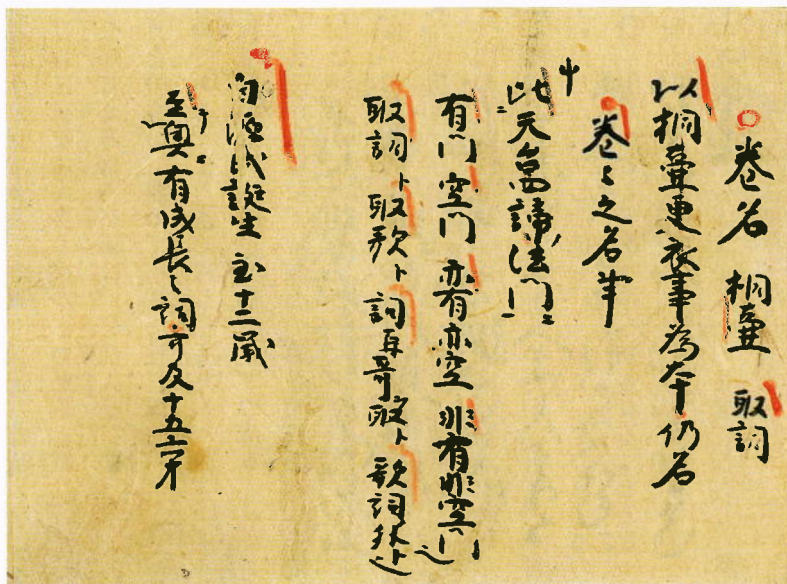 巻名 桐壷 取詞
以桐壷更衣事為本仍名
巻々之名事
比天台諦法門ニ
有門空門亦有亦空非有非空門
取詞ト取歌ト詞与哥取ト歌詞外ト也
自源氏誕生至十二歳
至奥ニ有成長之詞可及十五六才